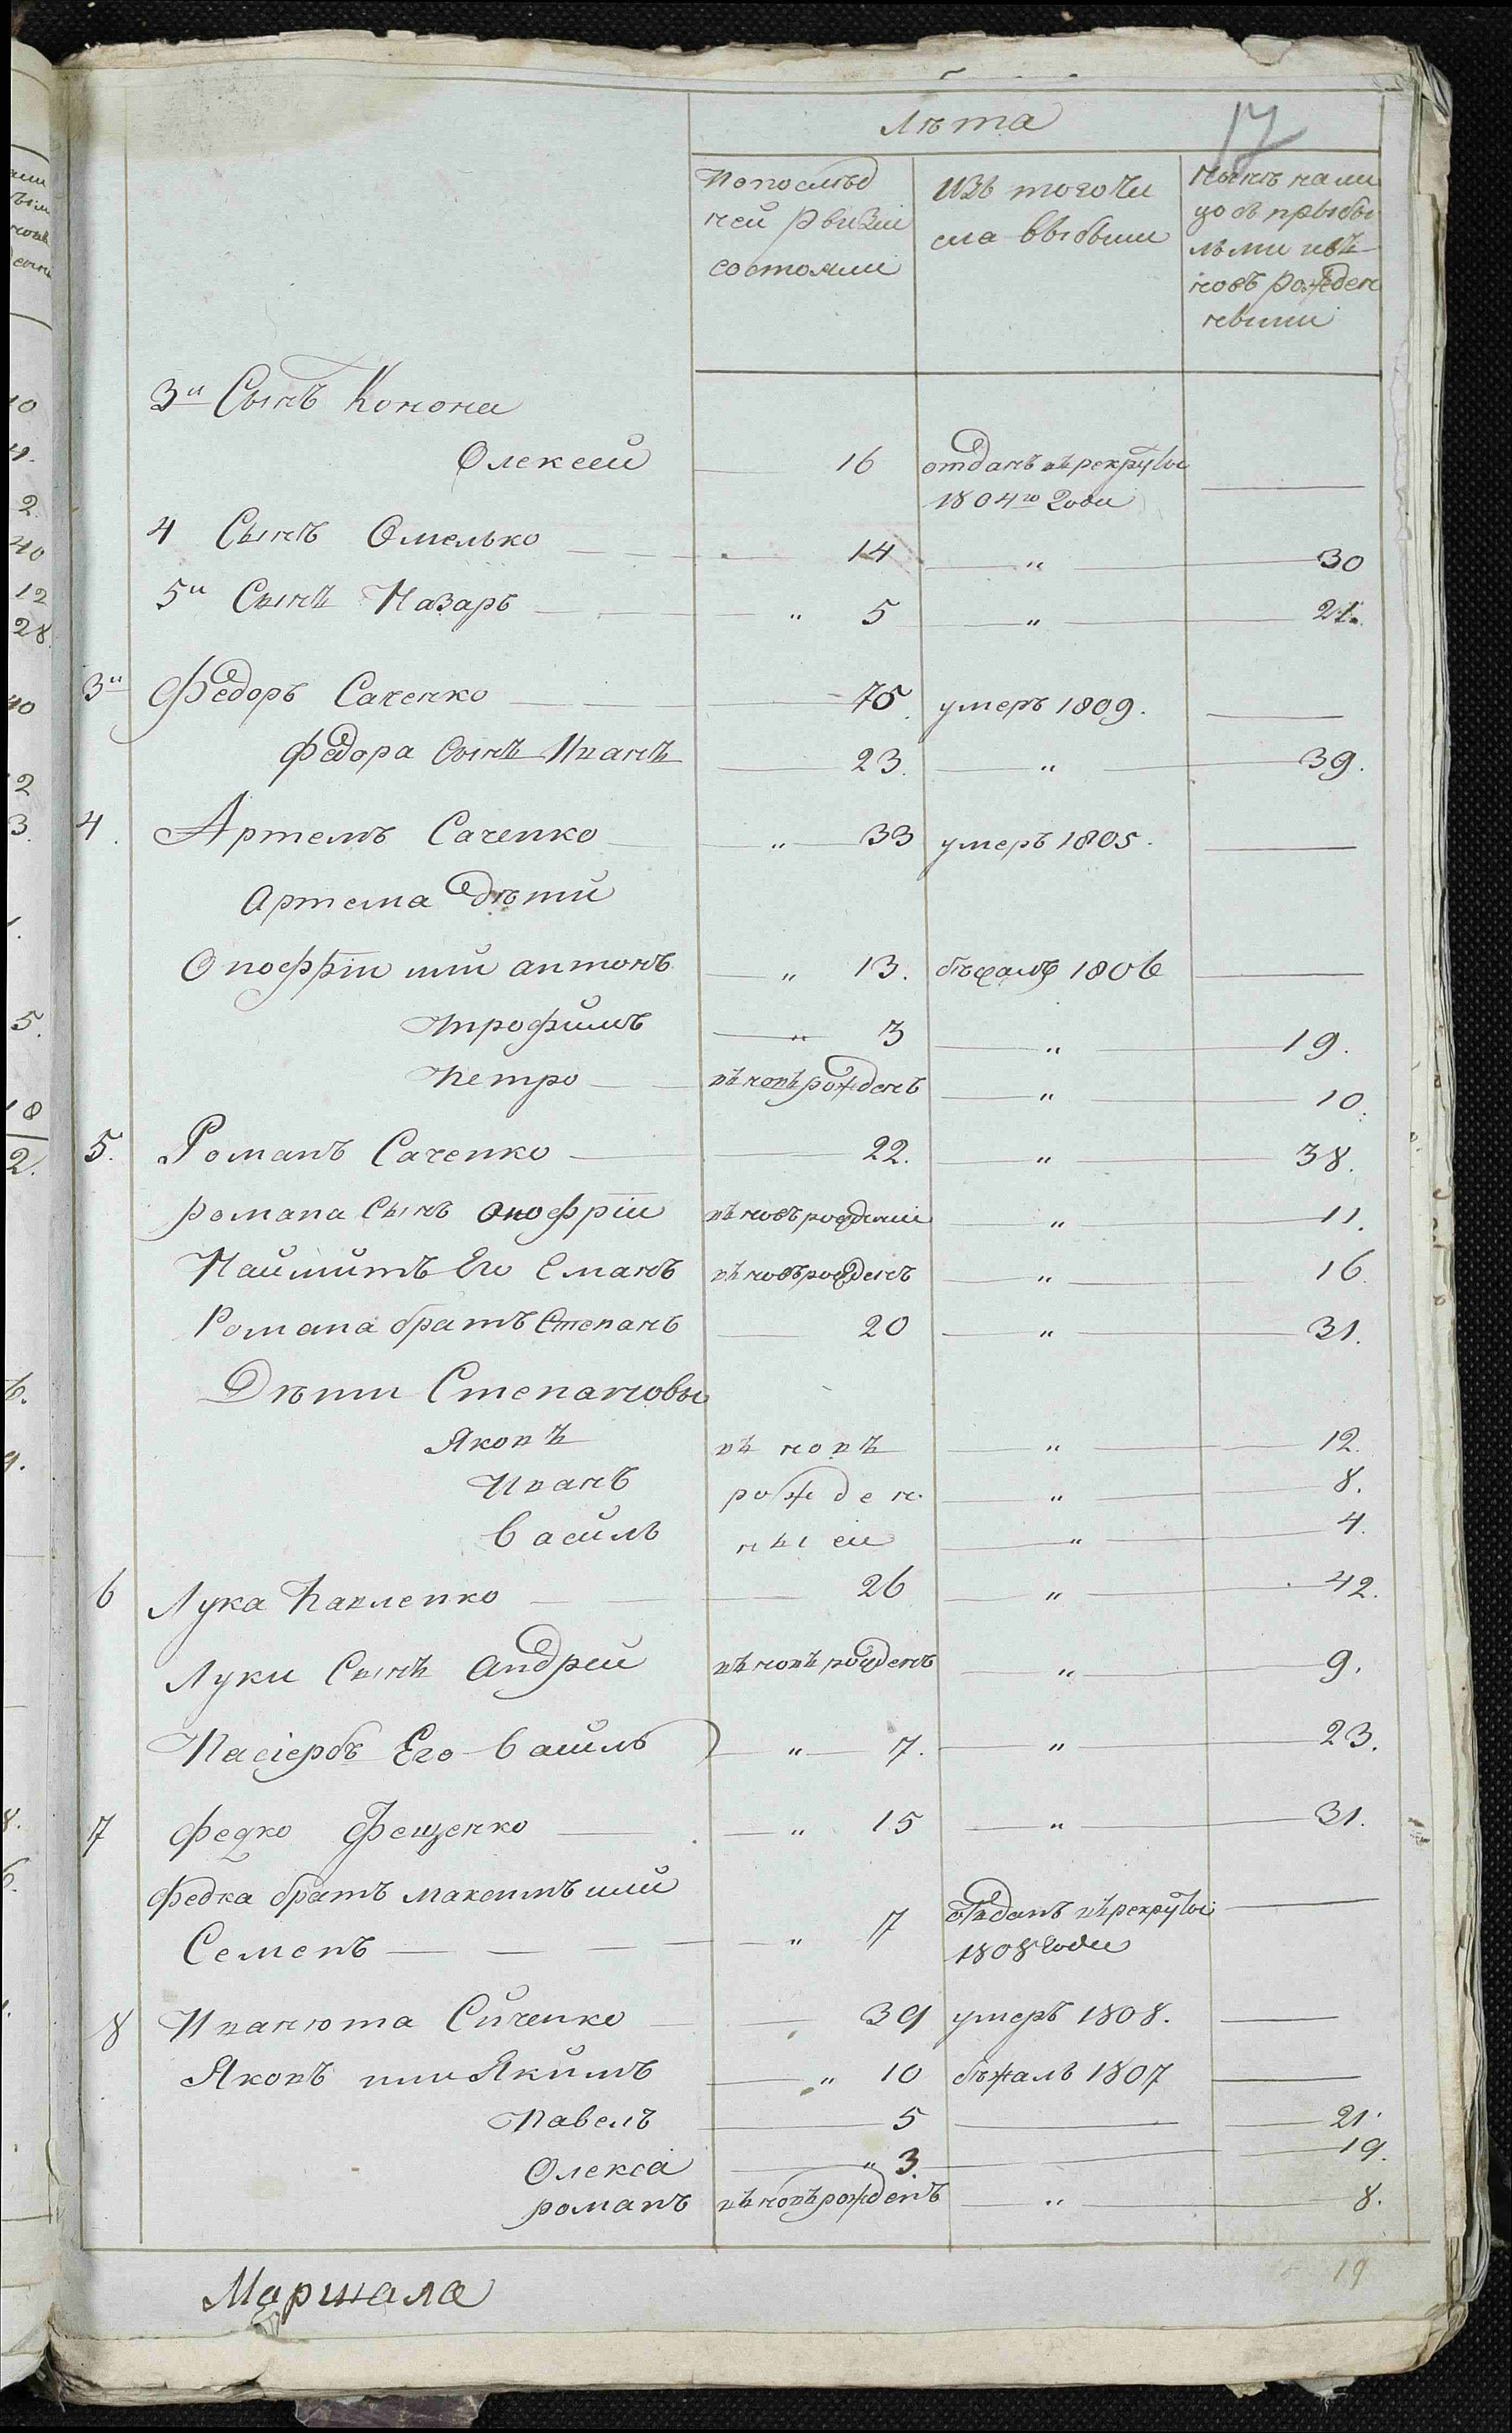 Лѣта
17
Попослѣд
ней рвизiи
состояли
изъ того чи
сла выбыли
Нынѣ нали
цо съ прыбы
лыми ивъ
новъ рожден
невыми
3й Сынъ Конона
Олексей 16 отданъ въ рекруты —
1804го Годы
4 Сынъ Омелько — 14 — „ — 30
5й Сынъ Назаръ — „ 5 — „ — 21.
3й Федоръ Саченко — 75. умеръ 1809. —
Федора Сынъ Иванъ — 23. — „ — 39.
4. Артемъ Саченко — „ 33 умеръ 1805. —
Артема Дѣти
Оноффрiи или антонъ — „ 13. бѣжалъ 1806 —
Трофимъ — „ 3 — „ — 19.
Петро — въ новъ рожденъ — „ — 10.
5. Романъ Саченко — 22. — „ — 38.
романа Сынъ Онофрiи въ новъ рожденiи — „ — 11.
Наймитъ Его Еманъ въ новъ рожденъ — „ — 16.
Романа братъ Степанъ — 20 — „ — 31.
Дѣти Степановы
Яковъ въ новъ — „ — 12.
Иванъ рожден — „ — 8.
василь ныеи — „ — 4.
6 Лука Павленко — 26 — „ — 42.
Луки Сынъ Андрей въ новъ рожденъ — „ — 9.
Пасiербъ Его василь — „ — 7. — „ — 23.
7 Федко Фещенко — „ 15 — „ — 31.
Федка братъ максимъ или
Семенъ — „ 7 отданъ въ рекруты —
1808 Годы
8 Иванюта Сиченко — 39 умеръ 1808. —
Яковъ или Якимъ — „ 10 бѣжалъ 1807 —
Павелъ — 5 — 21.
Олекса — „ 3. — 19.
романъ въ новъ рожденъ — „ — 8.
19
Маршала